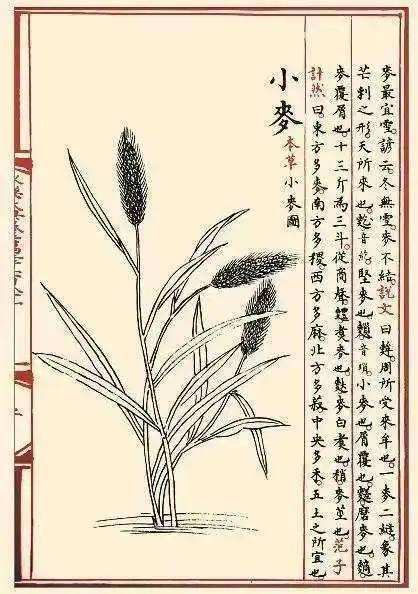 麥最宜雪諺云冬無雪麥不結說文曰麰周所受來牟也一麥二縫象其
芒刺之形天所來也音紇堅麥也音瑣小麥也屑覆也磨麥也
麥覆屑也十三斤為三斗從商煑麥也麥白煑也麥莖也范子
計然曰東方多麥南方多稷西方多麻北方多菽中央多禾五土之所宜也
小麥 本草小麥圖